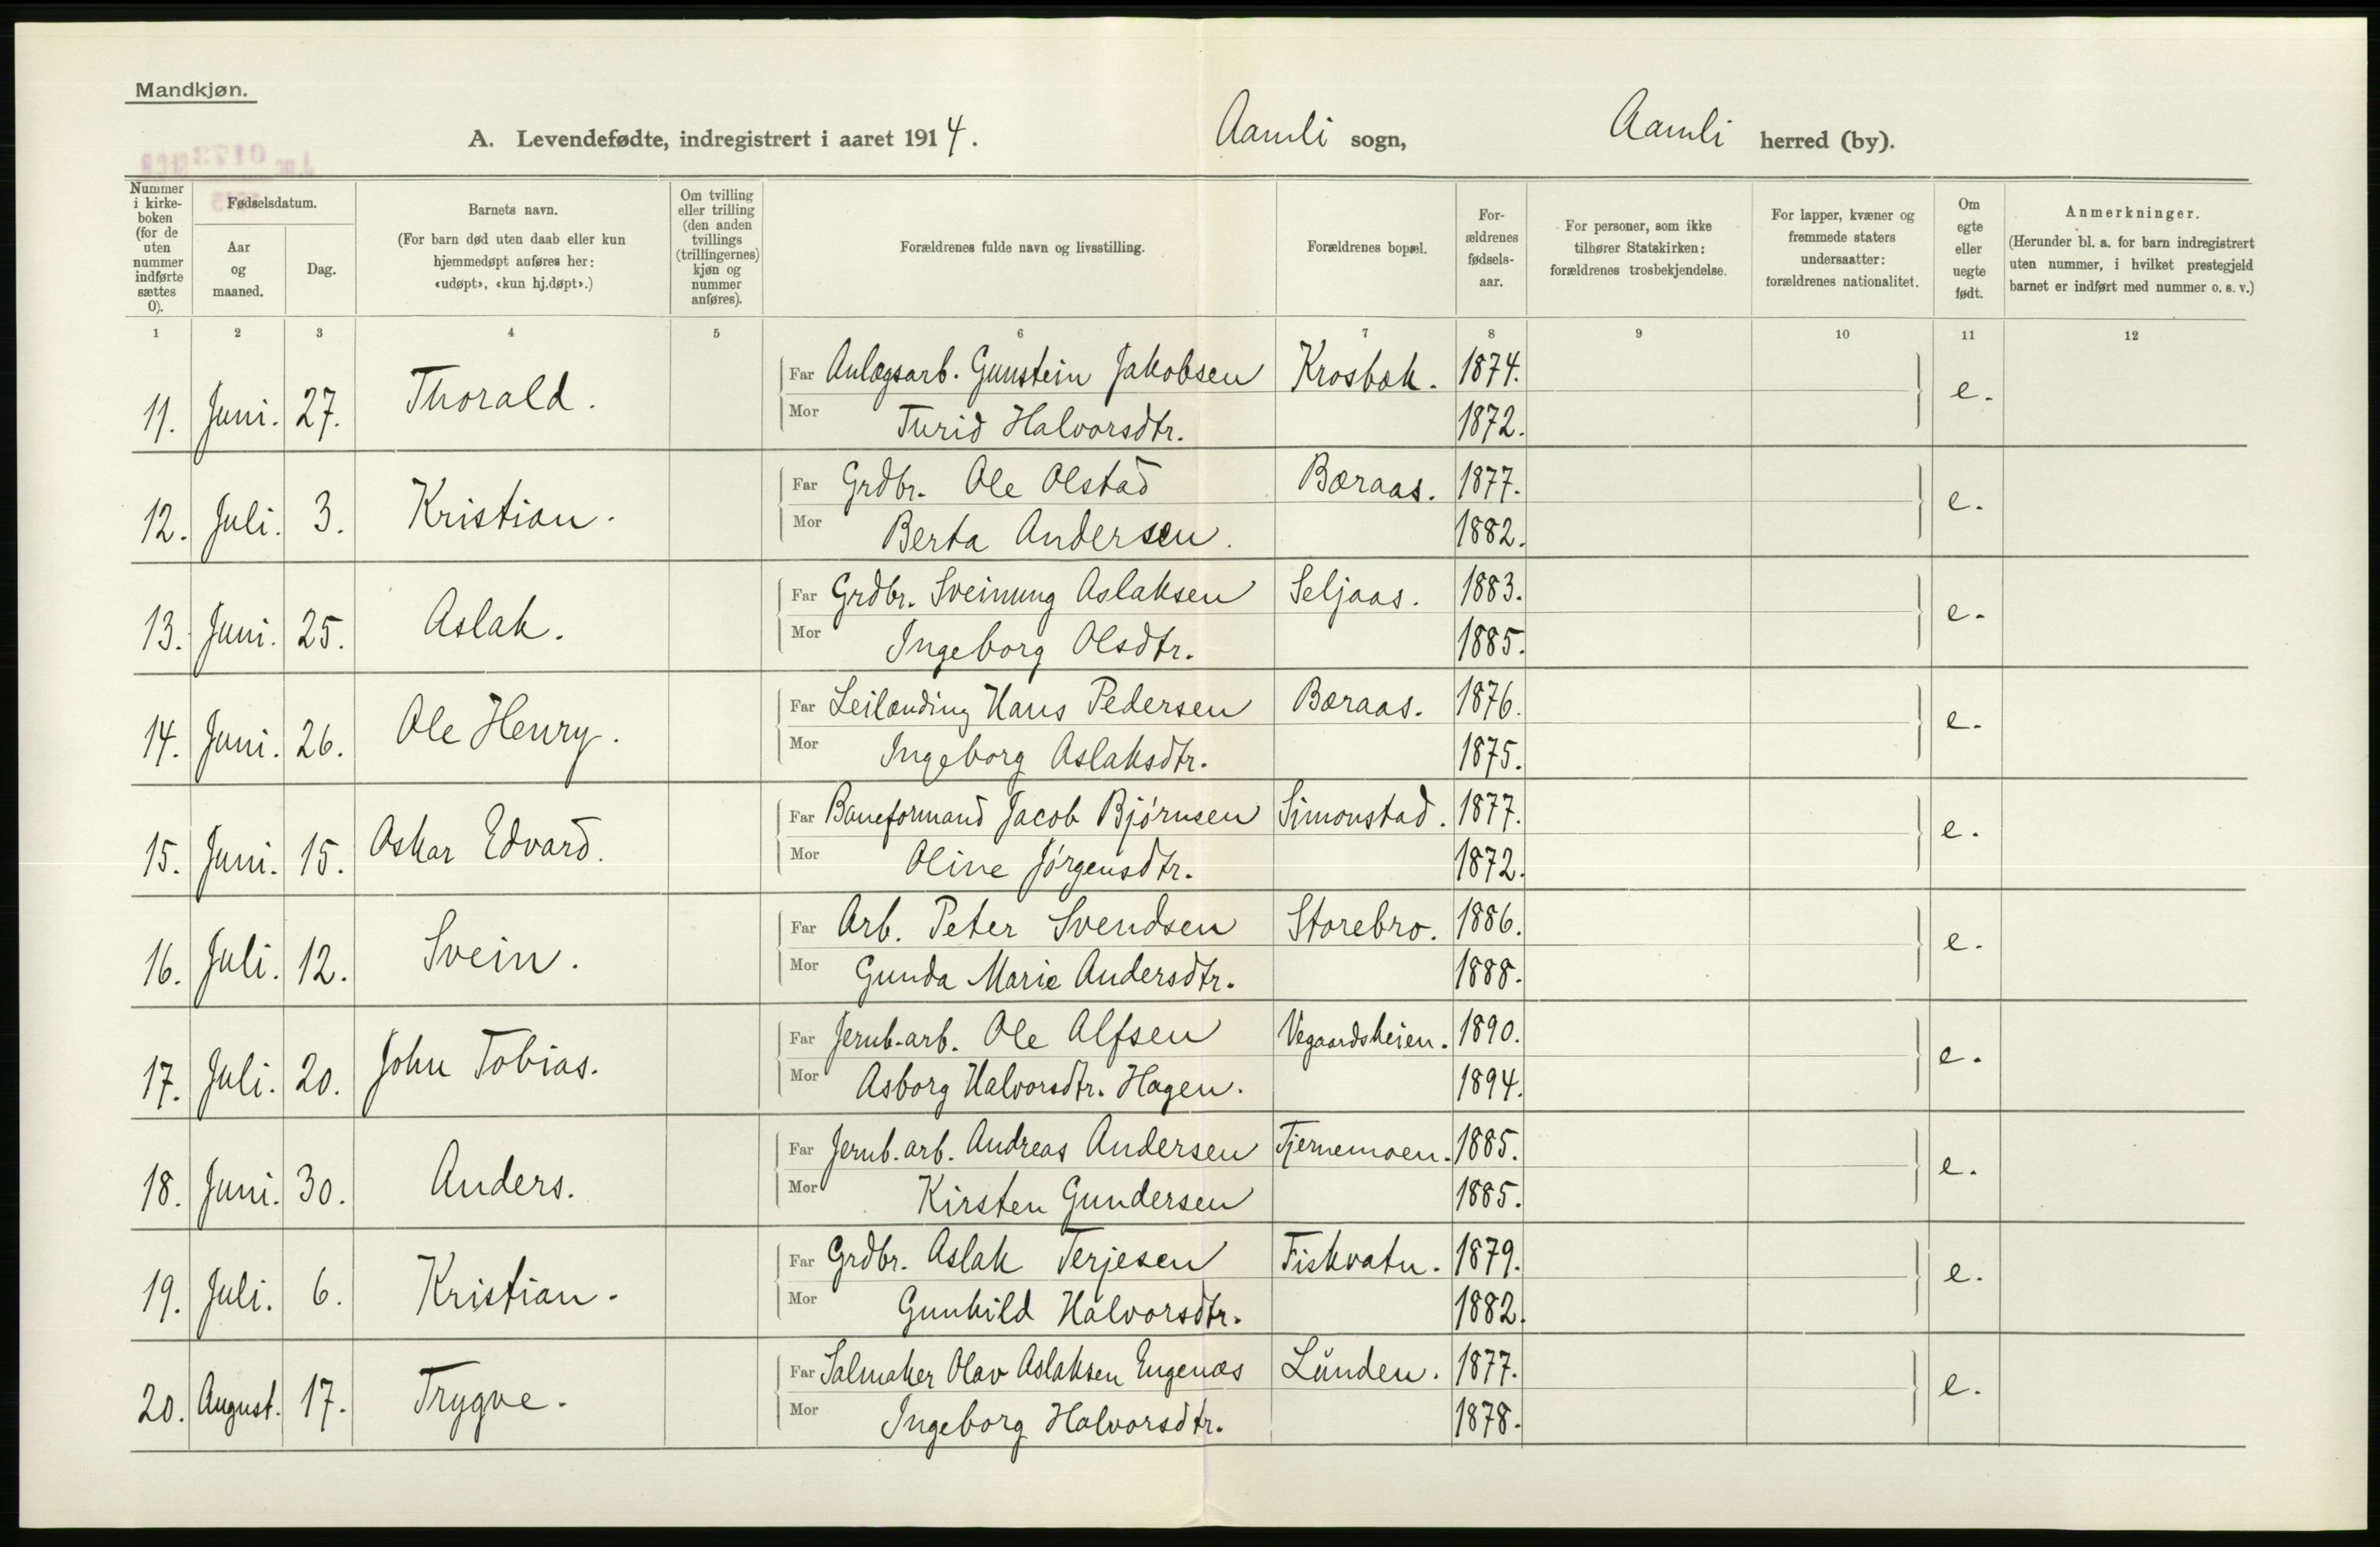 Mandkjøn.
A. Levendefødte, indregistrert i aaret 1914. Aamli sogn, Aamli herred (by).
Nummer i kirke- boken (for de uten nummer indførte sættes 0).
Fødselsdatum.
Aar og maaned.
Dag.
Barnets navn.
(For barn død uten daab eller kun hjemmedøpt anføres her: «udøpt», «kun hj.døpt».)
Om tvilling eller trilling (den anden tvillings (trillingernes) kjøn og nummer anføres).
Forældrenes fulde navn og livsstilling.
Forældrenes bopæl.
For- ældrenes fødsels- aar.
For personer, som ikke tilhører Statskirken: forældrenes trosbekjendelse.
For lapper, kvæner og fremmede staters undersaatter: forældrenes nationalitet.
Om egte eller uegte født.
Anmerkninger.
(Herunder bl. a. for barn indregistrert uten nummer, i hvilket prestegjeld barnet er indført med nummer o. s. v.)
1 2 3 4 5 6 7 8 9 10 11 12
11. Juni. 27. Thorald. Far Anlægsarb. Gunstein Jakobsen Krosbæk. 1874. e.
Mor Turid Halvorsdtr. 1872.
12. Juli. 3. Kristian. Far Grdbr. Ole Olstad Bæraas. 1877. e.
Mor Berta Andersen. 1882.
13. Juni. 25. Aslak. Far Grdbr. Sveinung Aslaksen Seljaas. 1883. e.
Mor Ingeborg Olsdtr. 1885.
14. Juni. 26. Ole Henry. Far Leilænding Hans Pedersen Bæraas. 1876. e.
Mor Ingeborg Aslaksdtr. 1875.
15. Juni. 15. Oskar Edvard. Far Baneformand Jacob Bjørnsen Simonstad. 1877. e.
Mor Oline Jørgensdtr. 1872.
16. Juli. 12. Svein. Far Arb. Peter Svendsen Storebro. 1886. e.
Mor Gunda Marie Andersdtr. 1888.
17. Juli. 20. John Tobias. Far Jernb.arb. Ole Alfsen Vegaardsheien. 1890. e.
Mor Asborg Halvorsdtr. Hagen. 1894.
18. Juni. 30. Anders. Far Jernb.arb. Andreas Andersen Tjernemoen. 1885. e.
Mor Kirsten Gundersen 1885.
19. Juli. 6. Kristian. Far Grdbr. Aslak Terjesen Fiskvatn. 1879. e.
Mor Gunhild Halvorsdtr. 1882.
20. August. 17. Trygve. Far Salmaker Olav Aslaksen Engenæs Lunden. 1877. e.
Mor Ingeborg Halvorsdtr. 1878.